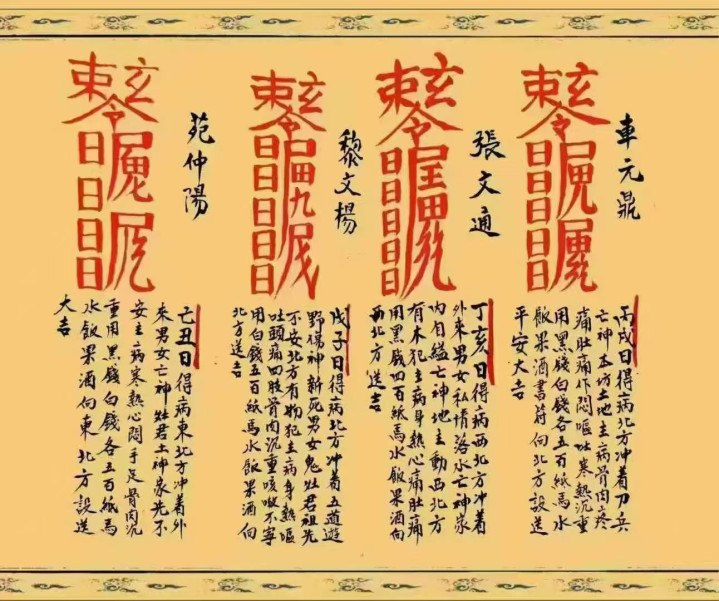 車元鼎
丙戌日得病北方冲着刀兵
亡神本坊土地主病骨肉疼
痛肚痛作悶嘔吐寒熱沉重
用黑錢白錢各五百紙馬水
飯果酒書符向北方設送
平安大吉
張文通
丁亥日得病西北方冲着
外來男女私情洛水亡神家
内自縊亡神地主動西北方
有木犯主病身熱心痛肚痛
用黑錢四百紙馬水飯果酒向
西北方送吉
黎文楊
戊子日得病北方冲着五道遊
野傷神新死男女鬼灶君祖先
不安北方有物犯主病身熱嘔
吐頭痛四肢骨肉沉重咳嗽不寧
用白錢五百紙馬水飯果酒向
北方送吉
苑仲陽
亡丑日得病東北方冲着外
來男女亡神灶君土神家先不
安主病寒熱心悶手足骨肉沉
重用黑錢白錢各五百紙馬
水飯果酒向東北方設送
大吉